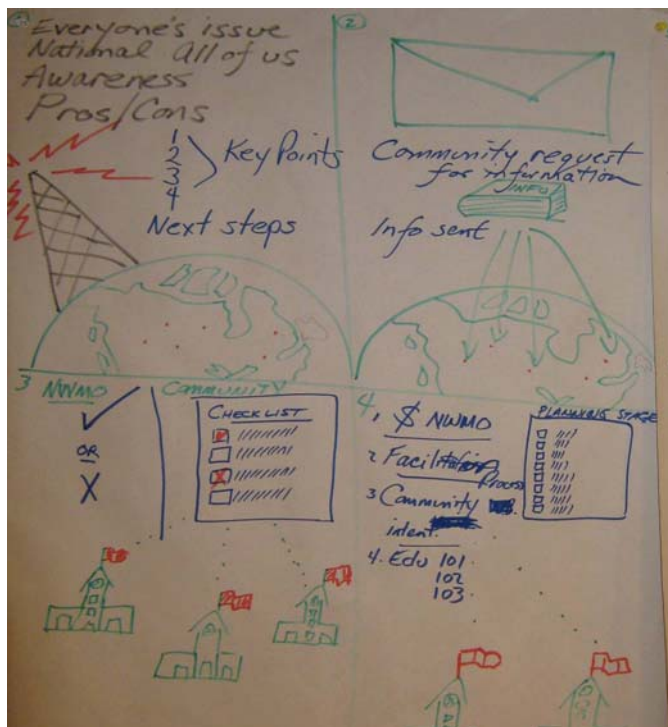 Everyone's issue
National All of us
Awareness
Pros/Cons
1
2
3
4
Key Points
Next steps
2
Community request
for information
INFO
Info sent
3 NWMO
OR
X
COMMUNITY
CHECKLIST
4.
1. $ NWMO
2 Facilitation
Process
3 Community
intent
4. Edu 101
102
103
PLANNING STAGE